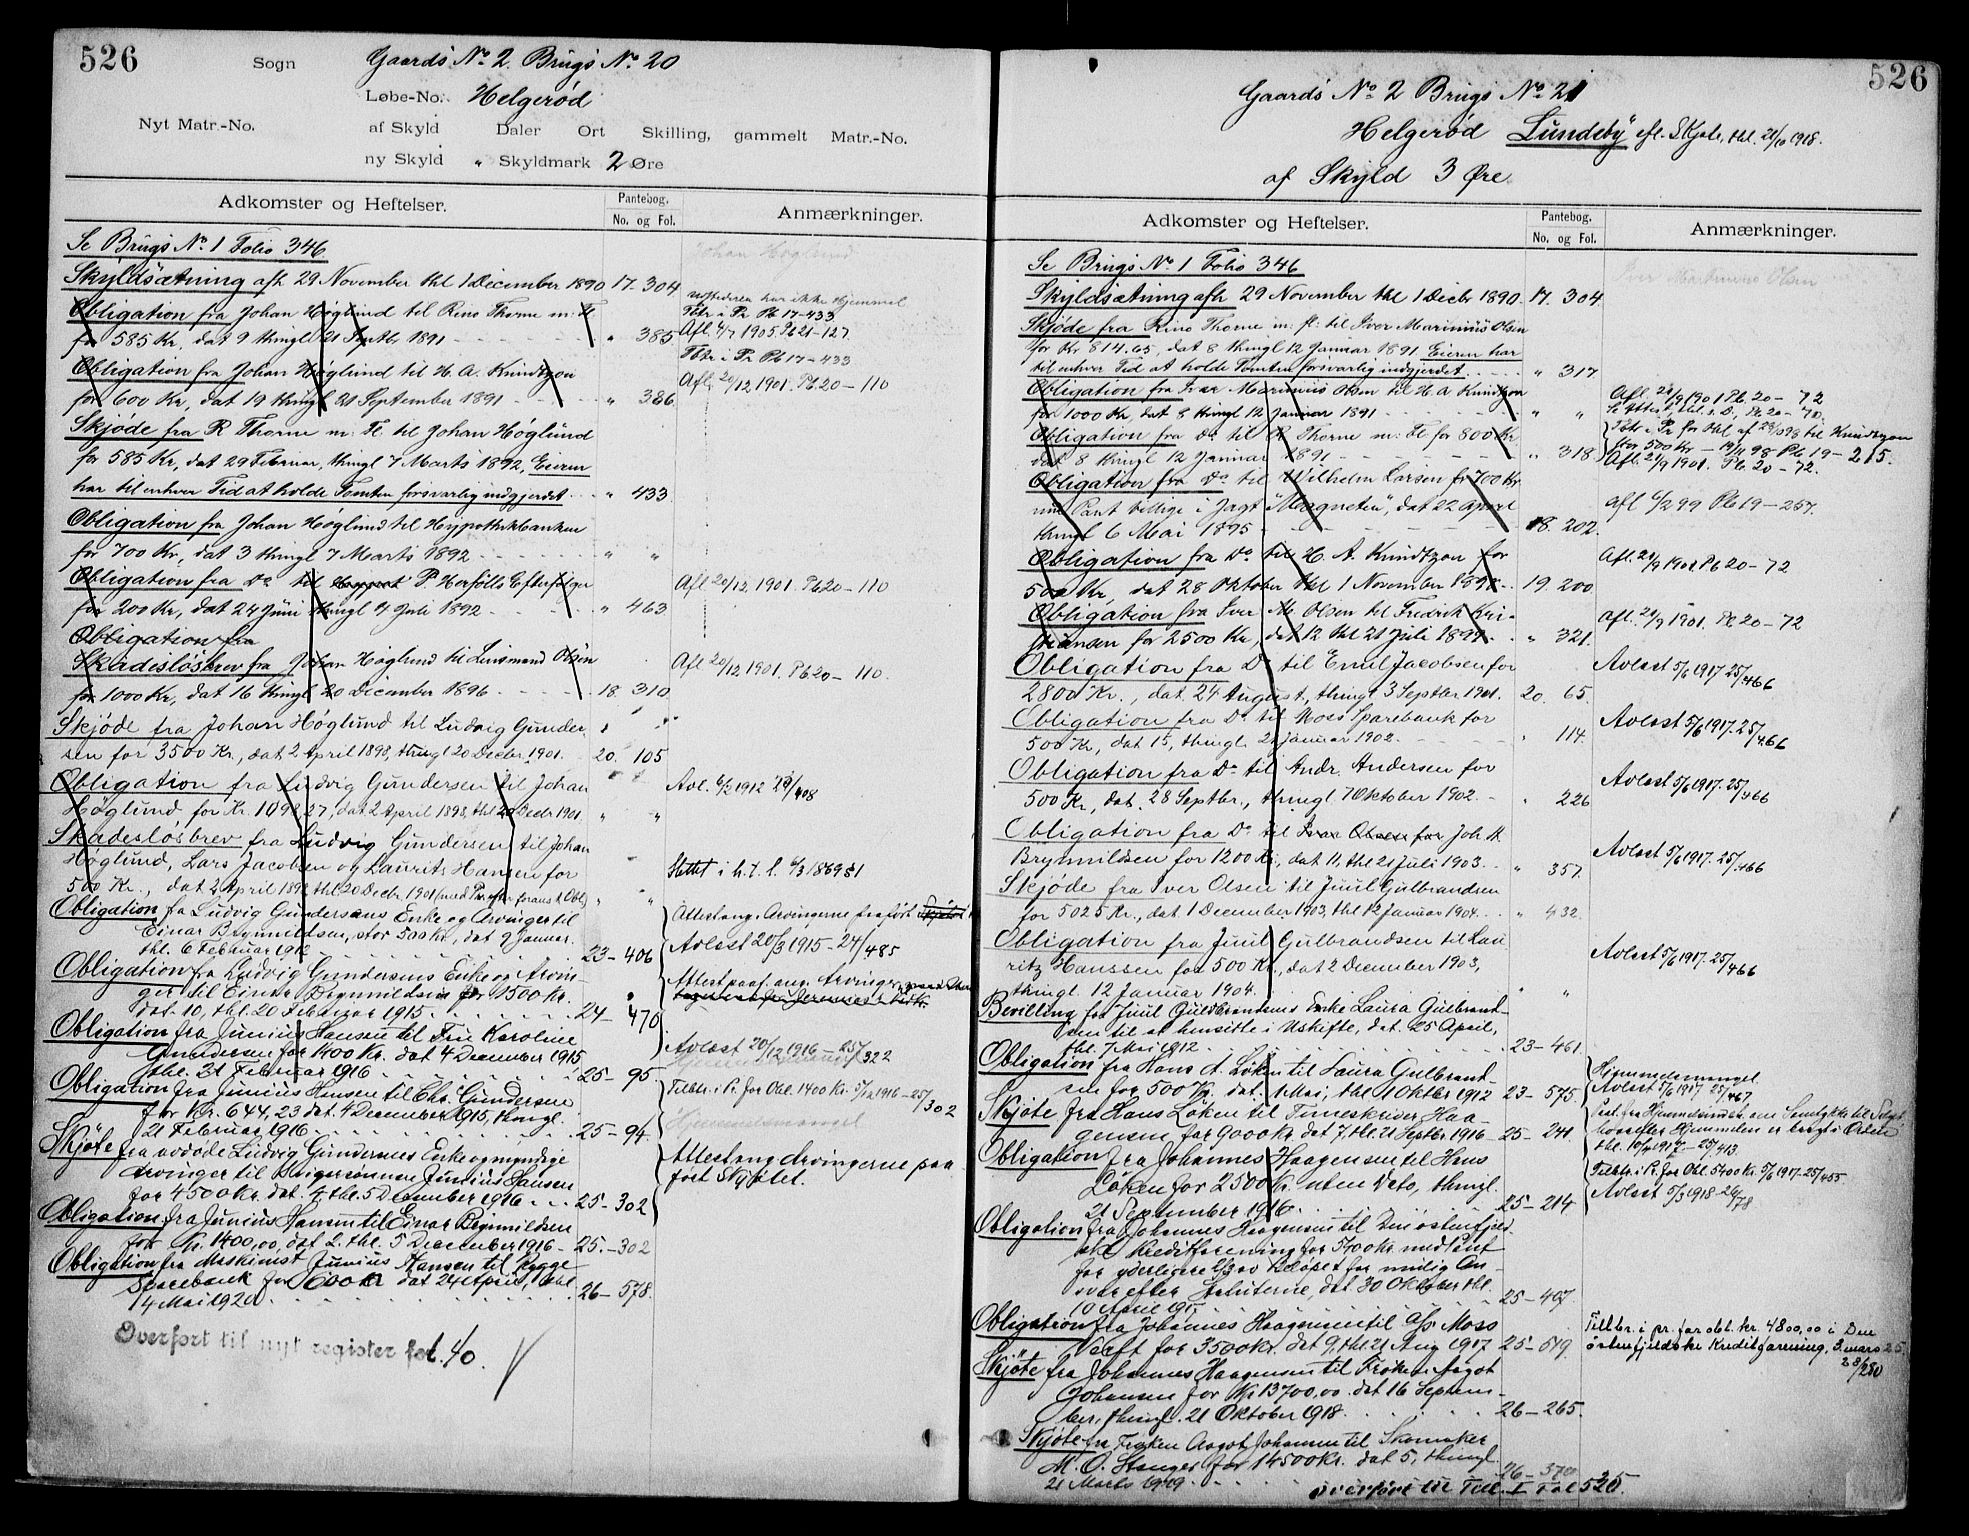 526
Sogn
Gaards No 2. Brugs No 20
Løbe-No. Helgerød
Nyt Matr.-No.
af Skyld Daler Ort Skilling, gammelt Matr.-No.
ny Skyld " Skyldmark 2 Øre
Adkomster og Heftelser.
Pantebog.
No. og Fol.
Anmærkninger.
Se Brugs No 1 Folio 346
Johan Høglund
Skyldsætning afh 29 November thl 1 December 1890 17-304
Udstederen har ikke Hjemmel
Obligation fra Johan Høglund til Rino Thorne m: Fl.
Tbtr i Pr Pb 17-433
for 585 Kr. dat 9 thingl 21 Septbr 1891 " 385
Afl 4/7 1905 Pb 21-127
Tbtr i Pr Pb 17-433
Obligation fra Johan Høglund til H. A. Knudtzon
Afl 20/12 1901. Pb 20-110
for 600 Kr, dat 19 thingl 21 September 1891 " 386
Skjøde fra R Thorne m: Fl. til Johan Høglund
for 585 Kr, dat 29 Februar, thingl 7 Marts 1892, Eieren
har til enhver Tid at holde Tomten forsvarlig indgjerdet " 433
Obligation fra Johan Høglund til Hypothekbanken
for 700 Kr, dat 3 thingl 7 Marts 1892 " "
Obligation fra Do til P Herfölls Efterfølger
Afl 20/12 1901. Pb 20-110
for 200 Kr, dat 24 Juni thingl 4 Juli 1892 " 463
Obligation fra
Skadesløsbrev fra Johan Høglund til Lensmand Olsen
Afl 20/12 1901. Pb 20-110.
for 1000 Kr, dat 16 thingl 20 December 1896 18 310
Skjøde fra Johan Høglund til Ludvig Gunder,
sen for 3500 Kr., dat 2 April 1898, thingl 20 Decbr. 1901. 20. 105
Obligation fra Ludvig Gundersen til Johan
Avl. 6/2 1912 23/408
Høglund, for Kr. 1092,27, dat 2 April 1898, thl 20 Decbr 1901. " "
Skadesløsbrev fra Ludvig Gundersen til Johan
Høglund, Lars Jacobsen og Laurits Hansen for
Slettet i h. t. l.
500 Kr., dat 2 April 1898 thl 20 Decbr 1901 (med Pr efter foranst. Obl) " "
Obligation fra Ludvig Gundersens Enke og Arvinger til
Attest ang. Arvingerne paaført
Einar Brynmildsen, stor 500 Kr, dat 9 Januar.
Avlest 20/3 1915-24/485
thl. 6 Februar 1912 23-406
Obligation fra Ludvig Gundersens Enke og Arvin-
Attest paaf. ang. Arvinger
ger til Einar Brynmildsen for 1500 Kr.
dat. 10, thl. 20 Februar 1915 24-470
Obligation fra Junius Hansen til Fru Karoline
Avlest 20/12 1916-25/322
Gundersen for 1400 Kr. dat 4 December 1915,
thl. 21 Februar 1916 25-95.
Obligation fra Junius Hansen til Chr. Gundersen
Tilbtr. i Pr. for Obl. 1400 Kr. 5/12 1916-25/302
for Kr. 644,23 dat. 4 December 1915, thingl.
Hjemmelsmangel
21 Februar 1916 25-94.
Skjøte fra avdøde Ludvig Gundersens Enke og myndige
Attest ang Arvingerne paa-
Arvinger til Junius Hansen
ført Skjøtet.
for 4500 Kr. dat. 4 thl. 5 December 1916 25-302
Obligation fra Junius Hansen til Einar Brynmildsen
for Kr. 1400,00, dat 2. thl. 5 December 1916 25-302
Obligation fra Maskinist Junius Hansen til Rygge
Sparebank for 600 Kr dat 24 April, thl
14 Mai 1920 26-578.
Overført til nyt register fol. 40.
526
Gaards No 2 Brugs No 21
Helgerød "Lundeby" efl. Skjøte, thl. 21/10 1918.
af Skyld 3 Øre.
Adkomster og Heftelser.
Pantebog.
No. og Fol.
Anmærkninger.
Se Brugs No 1 Folio 346
Iver Martinius Olsen
Skyldsætning afh 29 November thl 1 Decbr 1890. 17. 304
Skjøde fra Rino Thorne m. fl. til Iver Marinius Olsen
for Kr 814.65, dat 8 thingl 12 Januar 1891 Eieren har
til enhver Tid at holde Tomten forsvarlig indgjerdet " 317.
Obligation fra Iver Marinius Olsen til H. A Knudtzon
Afl. 21/9 1901 Pb. 20-72
for 1000 Kr, dat 8 thingl 12 Januar 1891 " "
Se Attest, thl. s. D., Pb 20-70.
Obligation fra Do til R Thorne m: Fl for 800 Kr
Tbtr i Pr for thl af til Knudtzon
dat 8 thingl 12 Januar 1891 " 318
stor 500 Kr 98 Pb 19-215.
Afl. 21/9 1901. Pb. 20-72.
Obligation fra Do til Wilhelm Larsen for 700 Kr
med Pant tillige i Jagt "Magneten", dat 22 April
afl 6/2 99 Pb 19-257.
thingl 6 Mai 1895 18. 202.
Obligation fra Do til H. A. Knudtzon for
Afl. 21/9 1901 Pb 20-72
500 Kr, dat 28 Oktober thl 1 November 1898 19. 200.
Obligation fra Iver M. Olsen til Fredrik Kri-
Afl. 21/9 1901. Pb 20-72
stiansen for 2500 Kr, dat 12 thl 21 Juli 1899 " 321.
Obligation fra Do til Emil Jacobsen for
Avlest 5/6 1917 25/466
2800 Kr., dat. 24 August, thingl 3 Septbr 1901. 20. 65.
Obligation fra Do til Moss Sparebank for
Avlest 5/6 1917. 25/466
500 Kr, dat 15, thingl 21 Januar 1902. " 114.
Obligation fra Do til Andr. Andersen for
Avlest 5/6 1917. 25/466
500 Kr, dat. 28 Septbr., thingl. 7 Oktober 1902. " 226
Obligation fra Do til Iver Olsen for Joh. A.
Brynmildsen for 1200 Kr., dat 11, thl 21 Juli 1903. " 357.
Avlest 5/6 1917. 25/466
Skjøde fra Iver Olsen til Juul Gulbrandsen
for 5025 Kr., dat 1 December 1903, thl 12 Januar 1904. " 432.
Obligation fra Juul Gulbrandsen til Lau-
Avlest 5/6 1917. 25/466
ritz Hanssen for 500 Kr., dat 2 December 1903,
thingl. 12 Januar 1904. " "
Bevilling for Juul Guldbrandsens Enke Laura Gulbrand-
sen til at hensitte i Uskifte, dat. 25 April,
thl. 7 Mai 1912 23-461.
Obligation fra Hans A. Løken til Laura Gulbrand-
Hjemmelsmangel
sen for 500 Kr. dat. 1 Mai, thl. 1 Oktbr 1912 23-575.
Avlest 5/6 1917 25/467
Skjøte fra Hans Løken til Timeskriver Haa-
gensen for 9000 Kr dat 7, thl. 21 Septbr. 1916 25-241.
Hjemmelen er bragt i Orden
thl. 10/4 1917-25/413.
Obligation fra Johannes Haagensen til Hans
Tilbtr. i Pr. for Obl. 5400 Kr. 5/6 1917-25/455
Løken for 2500 Kr uten Dato, thingl.
Avlest 5/3 1918-26/78
21 September 1916 25-214
Obligation fra Johannes Haagensen til Den østenfjeld-
ske Kreditforening for 5400 Kr. med Pant
for yderligere 2/300 Beløpet for mulig An-
svar efter Statuterne, dat 30 Oktober thl.
10 April 1917 25-407.
Obligation fra Johannes Haagensen til A/S Moss
Tilbtr. i pr. for obl. kr. 4800,00 i Den
Værft for 3500 Kr. dat 9, thl 21 Aug 1917 25-519.
østenfjeldske Kreditforening, 3. mars 25.
28/280
Skjøte fra Johannes Haagensen til Frøken Aagot
Johansen for Kr 13700,00 dat 16 Septem-
ber, thingl. 21 Oktober 1918. 26-265.
Skjøte fra Frøken Aagot Johansen til Skomaker
M. O. Stanger for 14500 Kr. dat 5, thingl.
21 Marts 1919 26-370
Overført til Till. I Fol 525.